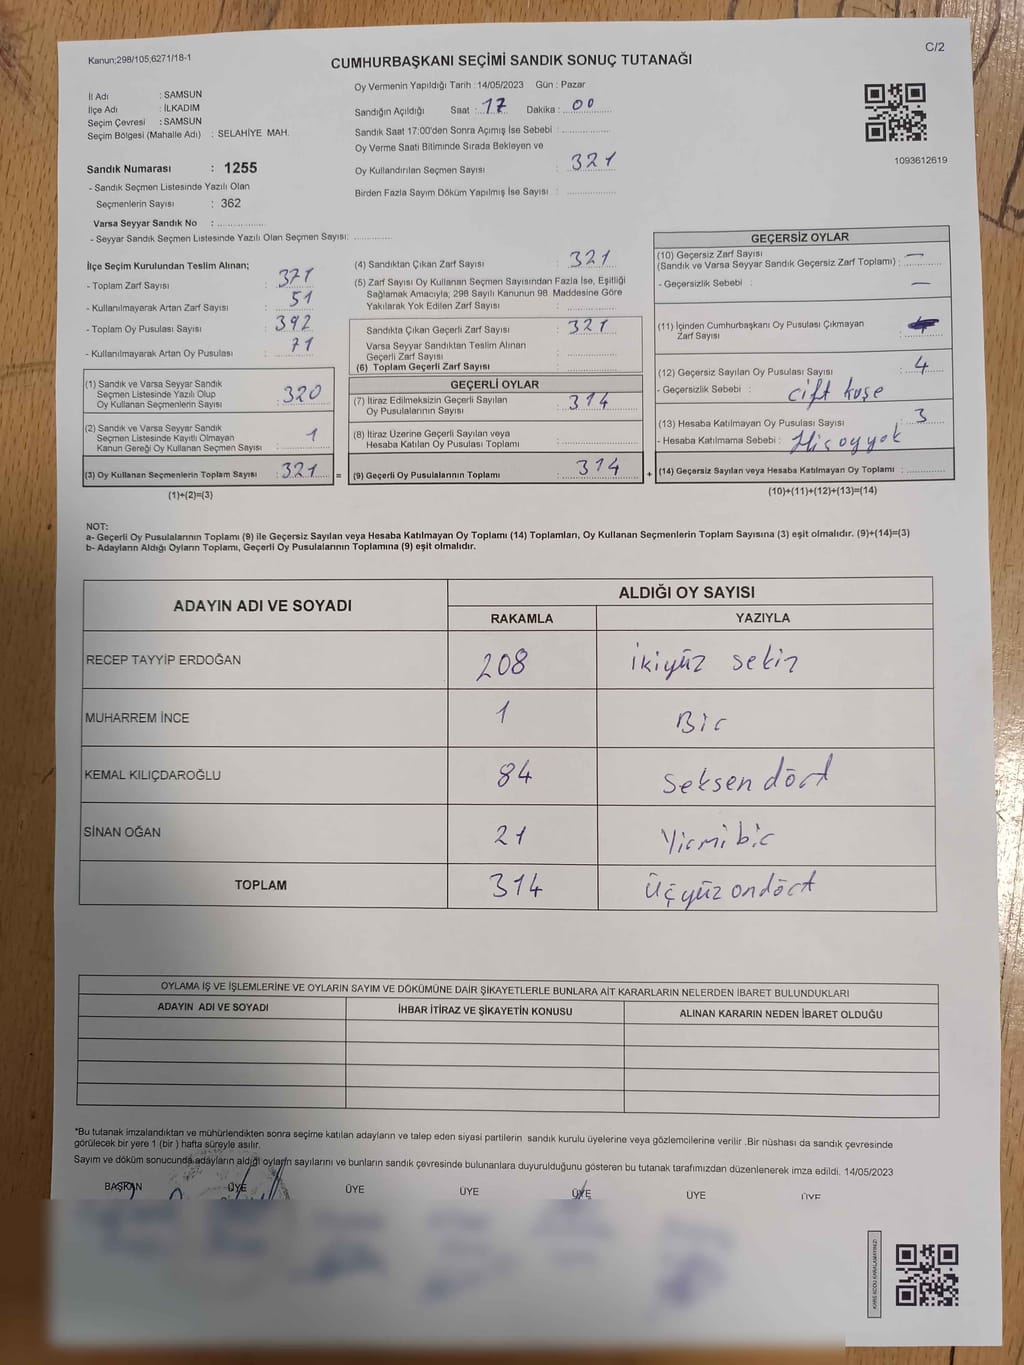 Kanun;298/105;6271/18-1
C/2
CUMHURBAŞKANI SEÇİMİ SANDIK SONUÇ TUTANAĞI
İl Adı : SAMSUN
İlçe Adı : İLKADIM
Seçim Çevresi : SAMSUN
Seçim Bölgesi (Mahalle Adı) : SELAHİYE MAH.
Oy Vermenin Yapıldığı Tarih : 14/05/2023 Gün : Pazar
Sandığın Açıldığı Saat : 17 Dakika : 00
Sandık Saat 17:00'den Sonra Açımış İse Sebebi :
Oy Verme Saati Bitiminde Sırada Bekleyen ve
Oy Kullandırılan Seçmen Sayısı : 321
Birden Fazla Sayım Döküm Yapılmış İse Sayısı :
1093612619
Sandık Numarası : 1255
- Sandık Seçmen Listesinde Yazılı Olan
Seçmenlerin Sayısı : 362
Varsa Seyyar Sandık No :
- Seyyar Sandık Seçmen Listesinde Yazılı Olan Seçmen Sayısı:
İlçe Seçim Kurulundan Teslim Alınan;
- Toplam Zarf Sayısı : 371
- Kullanılmayarak Artan Zarf Sayısı : 51
- Toplam Oy Pusulası Sayısı : 392
- Kullanılmayarak Artan Oy Pusulası : 71
(1) Sandık ve Varsa Seyyar Sandık
Seçmen Listesinde Yazılı Olup
Oy Kullanan Seçmenlerin Sayısı : 320
(2) Sandık ve Varsa Seyyar Sandık
Seçmen Listesinde Kayıtlı Olmayan
Kanun Gereği Oy Kullanan Seçmen Sayısı : 1
(3) Oy Kullanan Seçmenlerin Toplam Sayısı : 321 =
(1)+(2)=(3)
(4) Sandıktan Çıkan Zarf Sayısı : 321
(5) Zarf Sayısı Oy Kullanan Seçmen Sayısından Fazla İse, Eşitliği
Sağlamak Amacıyla; 298 Sayılı Kanunun 98. Maddesine Göre
Yakılarak Yok Edilen Zarf Sayısı :
Sandıkta Çıkan Geçerli Zarf Sayısı : 321
Varsa Seyyar Sandıktan Teslim Alınan
Geçerli Zarf Sayısı :
(6) Toplam Geçerli Zarf Sayısı :
GEÇERLİ OYLAR
(7) İtiraz Edilmeksizin Geçerli Sayılan
Oy Pusulalarının Sayısı : 314
(8) İtiraz Üzerine Geçerli Sayılan veya
Hesaba Katılan Oy Pusulası Toplamı :
(9) Geçerli Oy Pusulalarının Toplamı : 314 +
GEÇERSİZ OYLAR
(10) Geçersiz Zarf Sayısı
(Sandık ve Varsa Seyyar Sandık Geçersiz Zarf Toplamı) : —
- Geçersizlik Sebebi : —
(11) İçinden Cumhurbaşkanı Oy Pusulası Çıkmayan
Zarf Sayısı :
(12) Geçersiz Sayılan Oy Pusulası Sayısı : 4
- Geçersizlik Sebebi : çift kaşe
(13) Hesaba Katılmayan Oy Pusulası Sayısı : 3
- Hesaba Katılmama Sebebi : Hiç oy yok
(14) Geçersiz Sayılan veya Hesaba Katılmayan Oy Toplamı :
(10)+(11)+(12)+(13)=(14)
NOT:
a- Geçerli Oy Pusulalarının Toplamı (9) ile Geçersiz Sayılan veya Hesaba Katılmayan Oy Toplamı (14) Toplamları, Oy Kullanan Seçmenlerin Toplam Sayısına (3) eşit olmalıdır. (9)+(14)=(3)
b- Adayların Aldığı Oyların Toplamı, Geçerli Oy Pusulalarının Toplamına (9) eşit olmalıdır.
ADAYIN ADI VE SOYADI
ALDIĞI OY SAYISI
RAKAMLA YAZIYLA
RECEP TAYYİP ERDOĞAN 208 ikiyüz sekiz
MUHARREM İNCE 1 Bir
KEMAL KILIÇDAROĞLU 84 seksen dört
SİNAN OĞAN 21 Yirmi bir
TOPLAM 314 Üçyüz ondört
OYLAMA İŞ VE İŞLEMLERİNE VE OYLARIN SAYIM VE DÖKÜMÜNE DAİR ŞİKAYETLERLE BUNLARA AİT KARARLARIN NELERDEN İBARET BULUNDUKLARI
ADAYIN ADI VE SOYADI İHBAR İTİRAZ VE ŞİKAYETİN KONUSU ALINAN KARARIN NEDEN İBARET OLDUĞU
*Bu tutanak imzalandıktan ve mühürlendikten sonra seçime katılan adayların ve talep eden siyasi partilerin sandık kurulu üyelerine veya gözlemcilerine verilir .Bir nüshası da sandık çevresinde
görülecek bir yere 1 (bir ) hafta süreyle asılır.
Sayım ve döküm sonucunda adayların aldığı oyların sayılarını ve bunların sandık çevresinde bulunanlara duyurulduğunu gösteren bu tutanak tarafımızdan düzenlenerek imza edildi. 14/05/2023
BAŞKAN ÜYE ÜYE ÜYE ÜYE ÜYE ÜYE